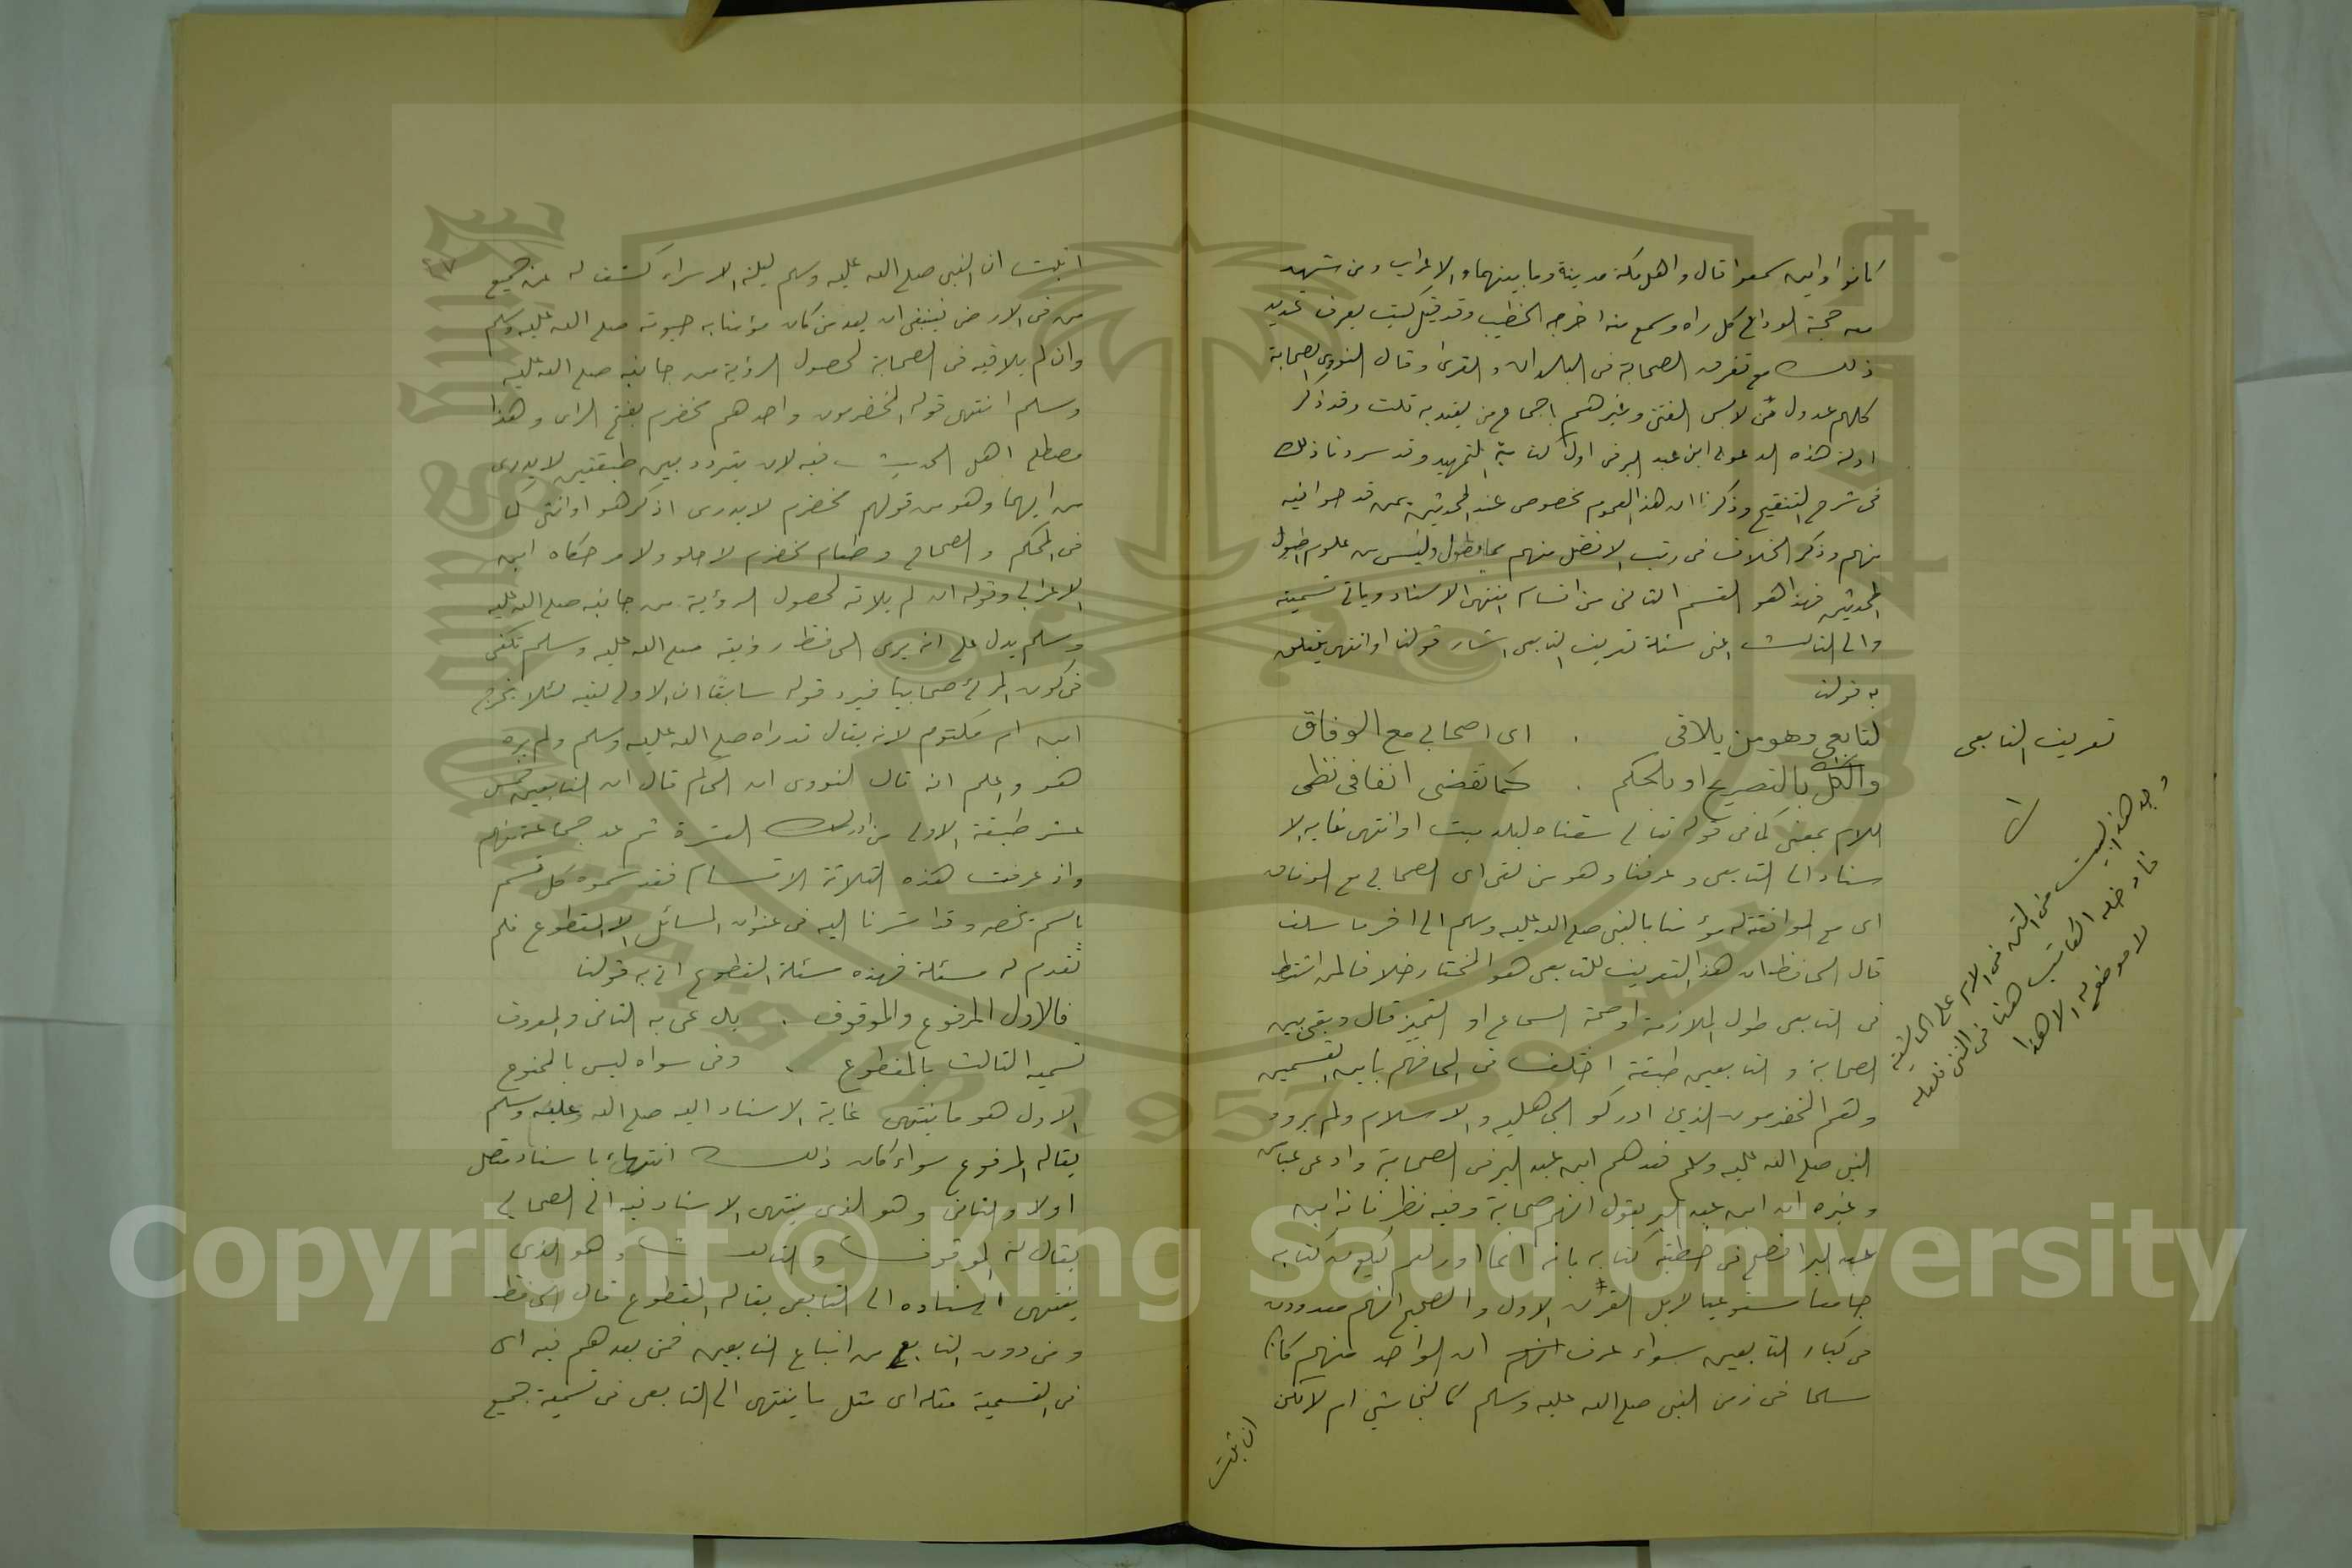 كانوا واين سمعوا قال واهل مكة مدينة وما بينهما والاعراب ومن شهد
معه حجة الوداع كل راه وسمع منه اخرجه الخطيب وقد قيل كيف يعرف تحديد
ذلك مع تفرق الصحابة فى البلدان والقرى وقال النووى الصحابة
كلهم عدول من لابس الفتن وغيرهم باجماع من يعتد به قلت وقد ذكر
ادلة هذه الدعوى ابن عبد البر فى اول كتابه التمهيد وقد سردنا ذلك
فى شرح التنقيح وذكرنا ان هذا العموم مخصوص عند المحدثين بمن قد
منهم وذكر الخلاف فى رتب الافضل منهم مما يطول وليس من علوم اصول
المحدثين فهذا هو القسم الثانى من اقسام انتهى الاسناد وياتى تسميته
والى الثالث اعنى مسئلة تعريف التابعى اشار قولنا او انتهى يتعلق
به قولنا
تعريف التابعى
لتابعى وهو من يلاقى . اى اصحابى مع الوفاق
والكل بالتصريح او بالحكم . كما تقضى اتفا فى نظمى
وجد هذا البيت فى المتن فى الام على الحاشية
فادخله الكاتب هنا فى المتن فلعله
لا موضع له الا هذا
اللام بمعنى كما فى قوله تعالى سقناه لبلد ميت او انتهى غاية الا
سناد الى التابعى وعرفنا وهو من لقى اى الصحابى مع الوفاق
اى مع الموافقة له مؤمنا بالنبى صلى الله عليه وسلم الى اخر ما سلف
قال الحافظ ان هذا التعريف للتابعى هو المختار خلافا لمن اشترط
فى التابعى طول الملازمة او صحة السماع او التمييز قال وبقى بين
الصحابة والتابعين طبقة اختلف فى الحاقهم باى القسمين
وهم المخضرمون الذين ادركو الجاهلية والاسلام ولم يرو
النبى صلى الله عليه وسلم فعدهم ابن عبد البر فى الصحابة وادعى عياض
وغيره ان ابن عبد البر يقول انهم صحابة وفيه نظر فانه ابن
عبد البر افصح فى خطبة كتابه بانه انما اوردهم ليكون كتابه
جامعا مستوعبا لاهل القرن الاول والصحيح انهم معدودون
فى كبار التابعين سواء عرف انهم ان الواحد منهم كان
مسلما فى زمن النبى صلى الله عليه وسلم كالنجاشى ام لا لكن
ان ثبت
٤٧
ان ثبت ان النبى صلى الله عليه وسلم ليلة الاسراء كشف له عن جميع
من فى الارض فينبغى ان يعد من كان مؤمنا به حيوته صلى الله عليه وسلم
وان لم يلاقيه فى الصحابة لحصول الرؤية من جانبه صلى الله عليه
وسلم انتهى قوله المخضرمون واحدهم مخضرم بفتح الراى وهذا
مصطلح اهل الحديث فيه لان يتردد بين طبقتين لا يدرى
من ايهما وهو من قولهم مخضرم لا يدرى اذكر هو او انثى كما
فى المحكم والصحاح وطعام مخضرم لا حلو ولا مر حكاه ابن
الاعرابى وقوله ان لم يلاقه لحصول الرؤية من جانبه صلى الله عليه
وسلم يدل على انه يرى الحافظ رؤيته صلى الله عليه وسلم تكفى
فى كون المرئ صحابيا فيرد قوله سابقا ان الاولى لقيه لئلا يخرج
ابن ام مكتوم لانه يقال قد راه صلى الله عليه وسلم ولم يره
هو واعلم انه قال النووى ان الحاكم قال ان التابعين خمس
عشر طبقة الاولى من ادرك العشرة ثم عد جماعة منهم
واذ عرفت هذه الثلاثة الاقسام فقد سموه كل قسم
باسم يخصه وقد اشرنا اليه فى عنوان المسائل الا المقطوع فلم
تقدم له مسئلة فهذه مسئلة المقطوع اتى به قولنا
فالاول المرفوع والموقوف . يدعى به الثانى والمعروف
تسميه الثالث بالمقطوع . وفى سواه ليس بالممنوع
الاول هو ما ينتهى غاية الاسناد اليه صلى الله عليه وسلم
يقال له المرفوع سواء كان ذلك انتهاء باسناد متصل
او لا والثانى وهو الذى ينتهى الاسناد فيه الى الصحابى
يقال له الموقوف والثالث وهو الذى
ينتهى اسناده الى التابعى يقال له المقطوع قال الحافظ
ومن دون التابع من اتباع التابعين فمن بعدهم فيه اى
فى التسمية مثله اى مثل ما ينتهى الى التابعى فى تسمية جميع
Copyright © King Saud University
1957